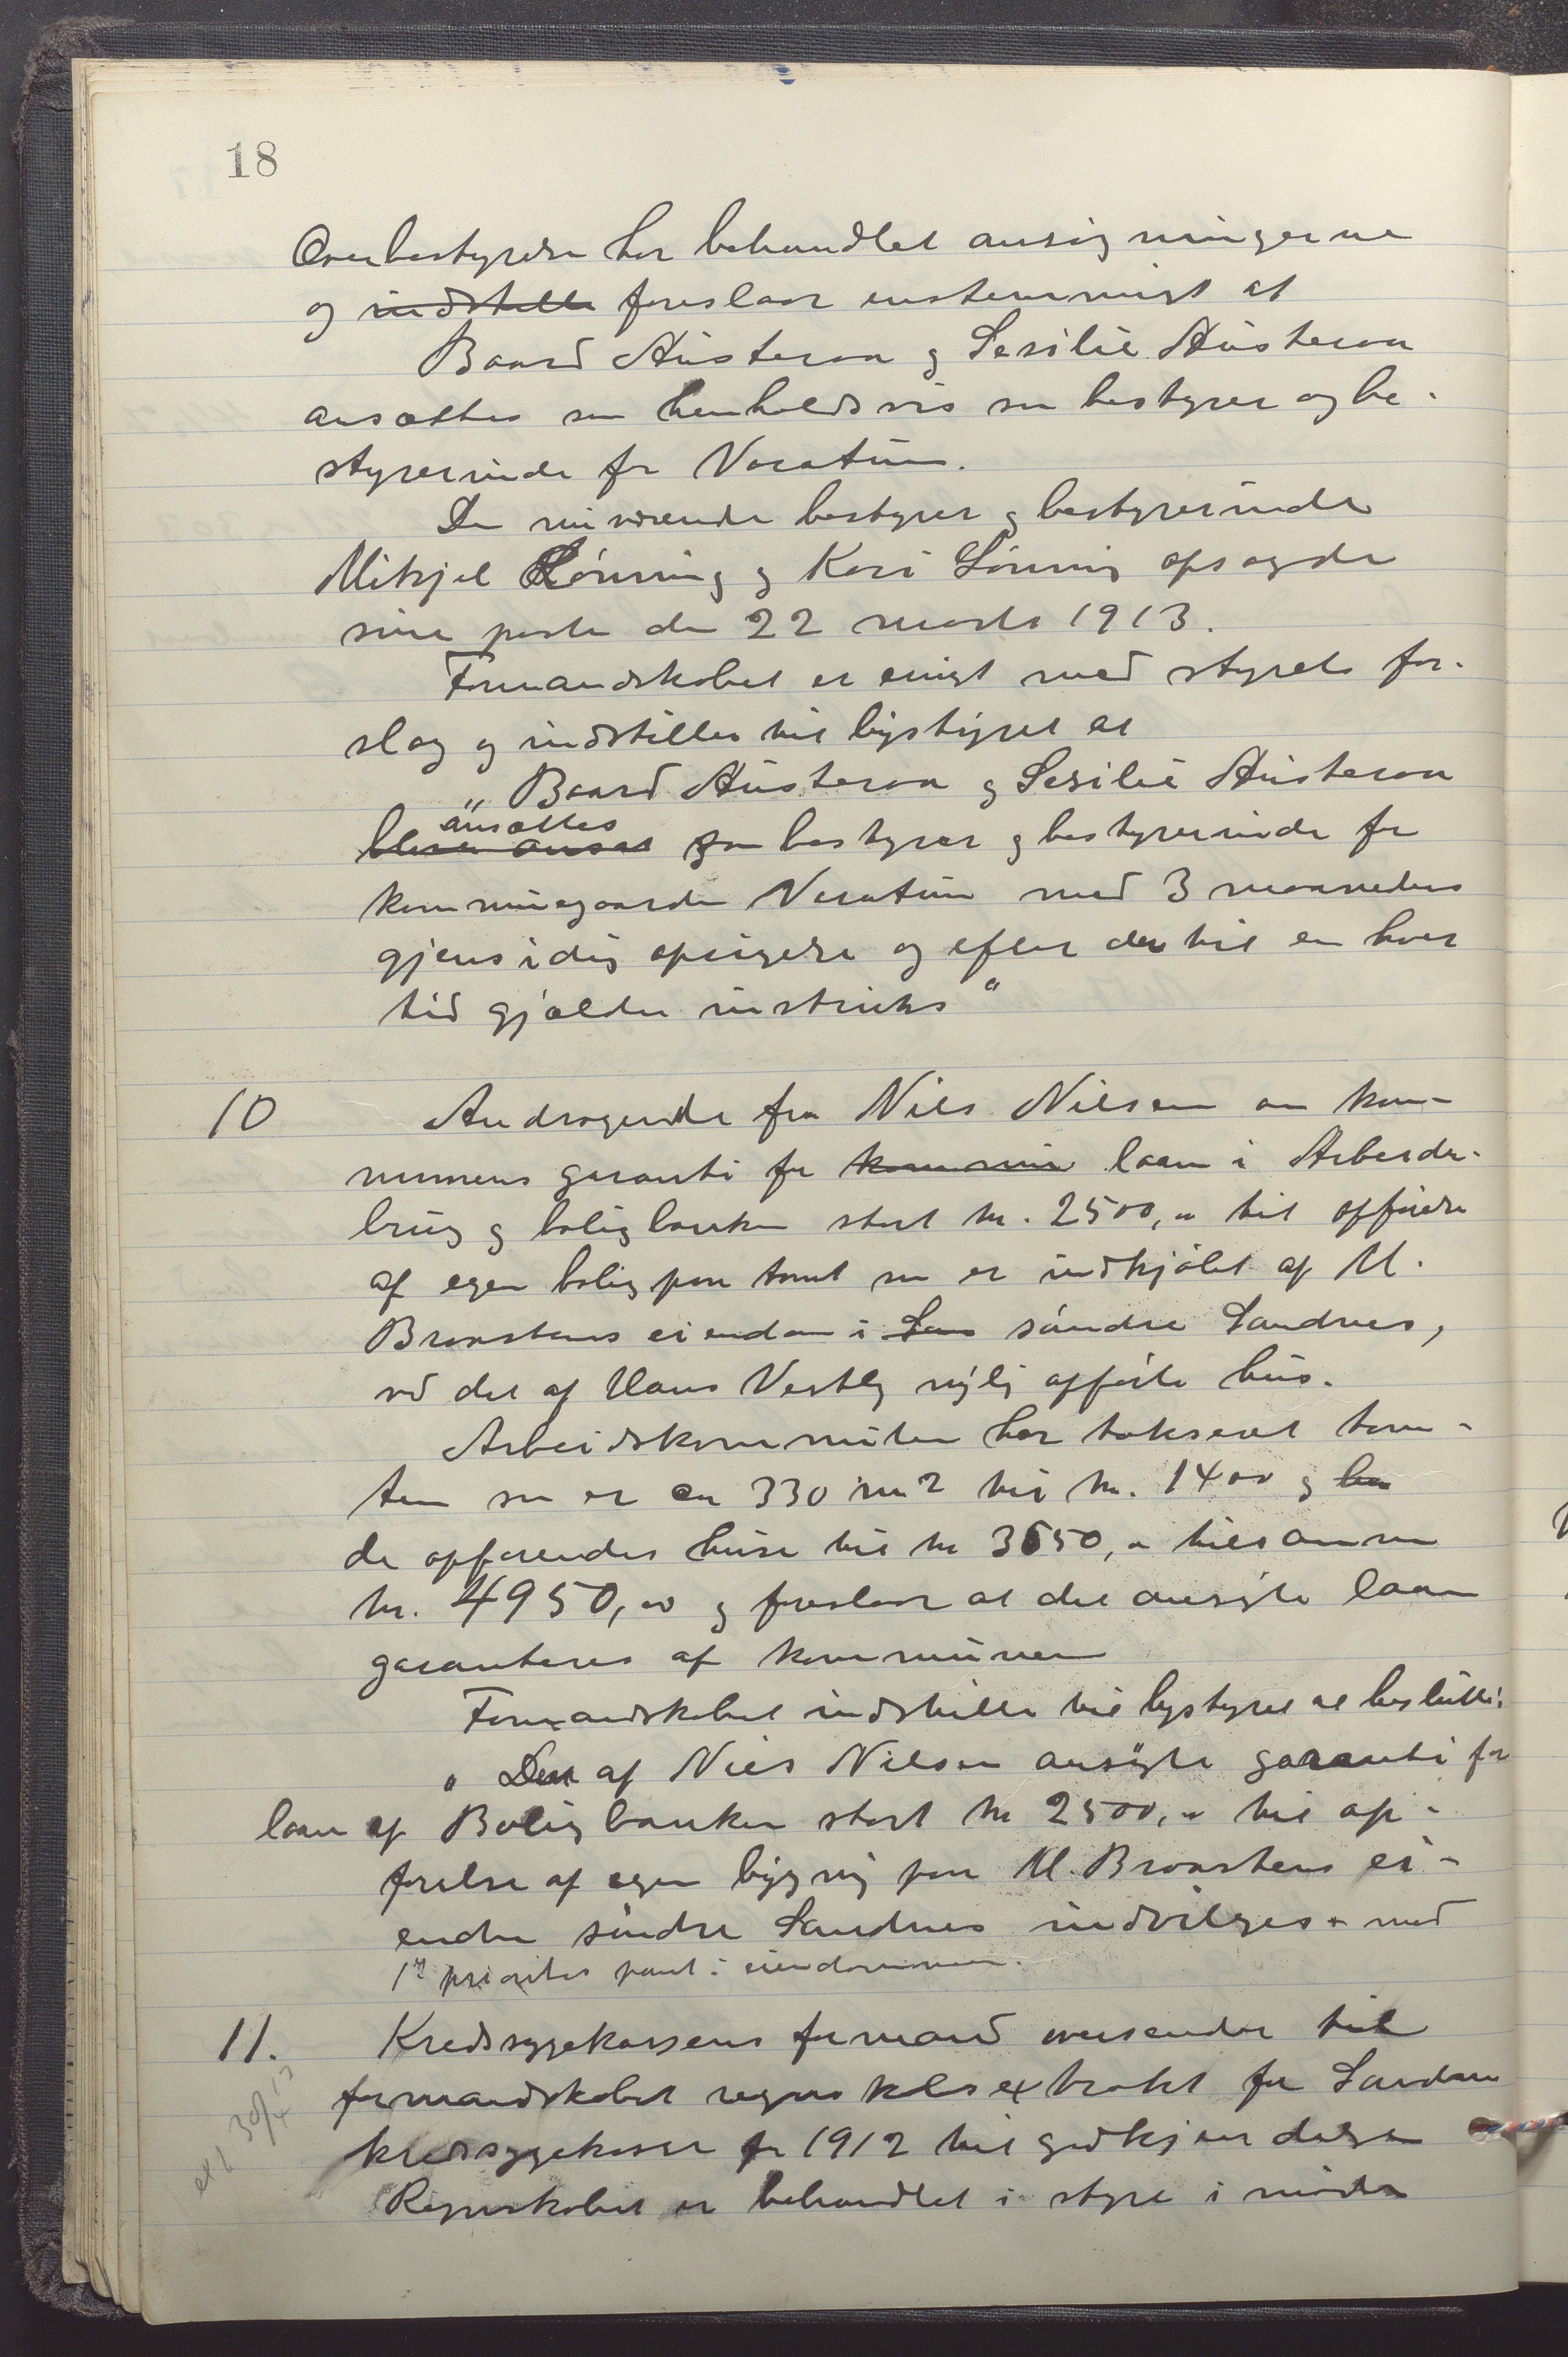 18
Overbestyrelsen har behandlet ansøgningerne
og indstille foreslaar enstemmigt at
Baard Austeraa og Sesilie Austeraa
ansættes som henholdsvis som bestyrer og be-
styrerinde for Voratun.
De nuværende bestyrer og bestyrerinde
Mikjel Lönning og Kari Lönning opsagde
sine poster den 22 marts 1913.
Formandskabet er enigt med styrets for-
slag og indstiller til bystyret at
"Baard Austeraa og Sesilie Austeraa
ansættes
bliver ansat som bestyrer og bestyrerinde for
kommunegaarden Voratun med 3 maaneders
gjensidig opsigelse og efter den til en hver
tid gjældende instruks"
10 Andragende fra Nils Nilsen om kom-
munens garanti for kommun laan i Arbeider-
brug og boligbanken stort kr. 2500,00 til opførelse
af egen bolig paa tomt som er indkjøbt af M.
Braastens eiendom i San søndre Sandnes,
ved det af Hans Vestly nylig opførte hus.
Arbeidskommiteen har taksert tom-
ten som er ca 330 m2 til kr. 1400 og hu
de opførendes huse til kr 3550,00 tilsammen
kr. 4950,00 og foreslaar at det ansøgte laan
garanteres af kommunen
Formandskabet indstiller til bystyret at beslutte:
"Den af Nils Nilsen ansøgte garanti for
laan af Boligbanken stort kr 2500,00 til op-
førelse af egen bygning paa M. Braastens ei-
endom søndre Sandnes indvilges med
1ste prioritets pant i eiendommen.
11. Kredssygekassens formand oversender til
formandskabet regnskabsextrakt for Sandnes
kredssygekasse for 1912 til godkjendelse
exp 30/4 13
Regnskabet er behandlet i styre i møde